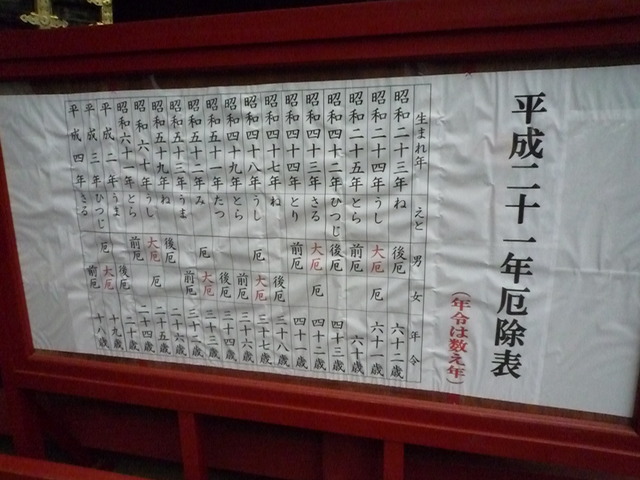 平成二十一年厄除表
(年令は数え年)
生まれ年 えと 男 女 年令
昭和二十三年ね 後厄 六十二歳
昭和二十四年うし 大厄 厄 六十一歳
昭和二十五年とら 前厄 六十歳
昭和四十二年ひつじ 後厄 四十三歳
昭和四十三年さる 大厄 厄 四十二歳
昭和四十四年とり 前厄 四十一歳
昭和四十七年ね 後厄 三十八歳
昭和四十八年うし 厄 大厄 三十七歳
昭和四十九年とら 前厄 三十六歳
昭和五十一年たつ 後厄 三十四歳
昭和五十二年み 厄 大厄 三十三歳
昭和五十三年うま 前厄 三十二歳
昭和五十九年ね 後厄 二十六歳
昭和六十年うし 大厄 厄 二十五歳
昭和六十一年とら 前厄 二十四歳
平成二年うま 後厄 二十歳
平成三年ひつじ 厄 大厄 十九歳
平成四年さる 前厄 十八歳